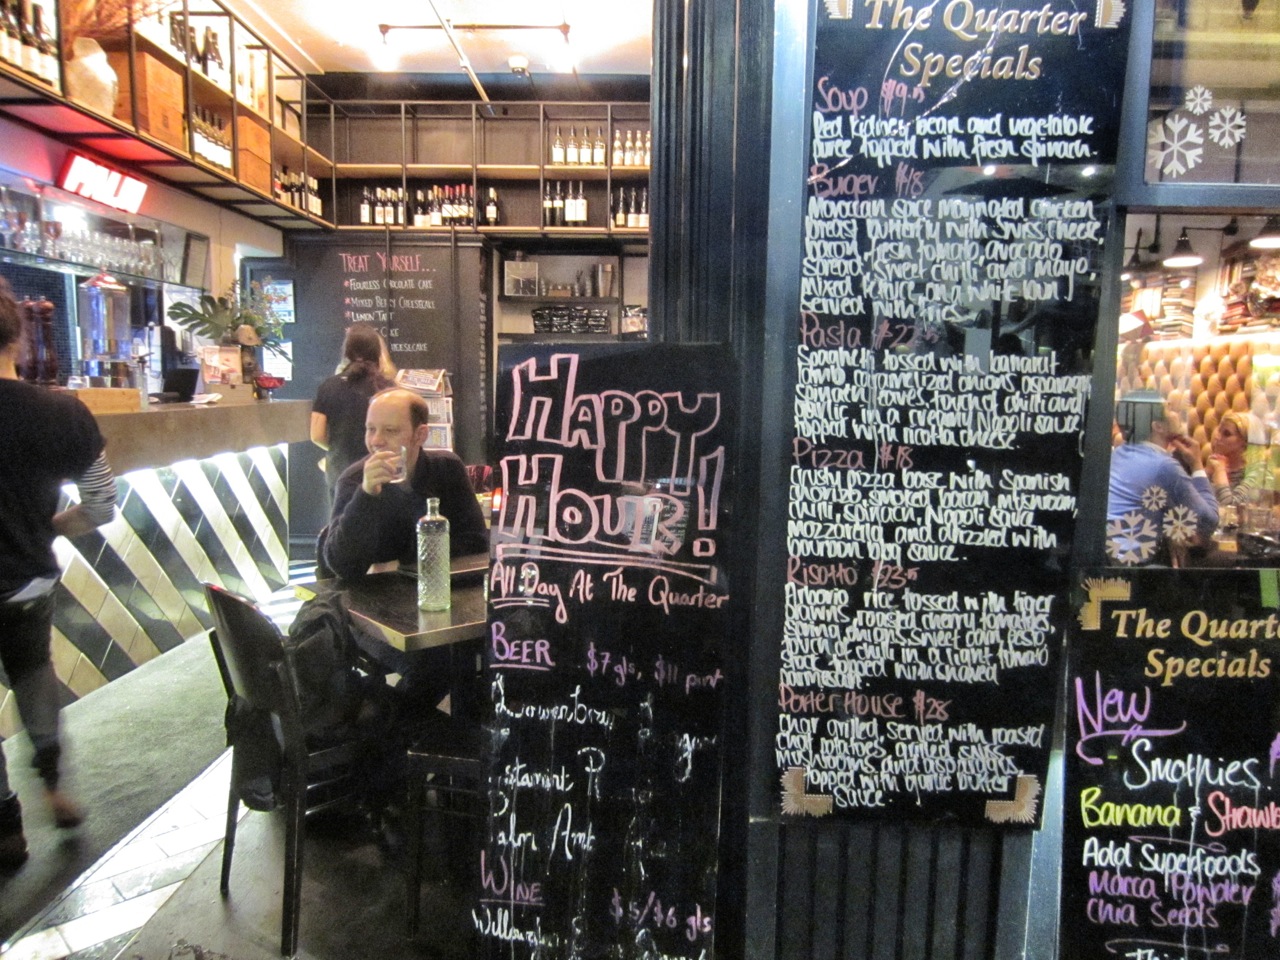 TREAT YOURSELF...
FLOURLESS CHOCOLATE CAKE
MIXED BERRY CHEESECAKE
LEMON TART
HAPPY
HOUR!
All Day At The Quarter
BEER $7 gls, $11 pint
WINE $5/$6 gls
The Quarter
Specials
Soup
Red kidney bean and vegetable
puree topped with fresh spinach.
Burger $18
Moroccan spice marinated chicken
breast butterfly with swiss cheese,
bacon, fresh tomato, avocado
spread, sweet chilli and mayo,
mixed lettuce, and white bun,
served with fries
Pasta
Spaghetti tossed with
lamb, caramelized onions, asparagus
olives, touch of chilli and
garlic in a creamy Napoli sauce
topped with ricotta cheese.
Pizza $18
Crusty pizza base with Spanish
chorizo, smoked bacon, mushroom,
chilli, spinach, Napoli sauce,
mozzarella and drizzled with
bourbon bbq sauce.
Risotto
Arborio rice tossed with tiger
prawns, roasted cherry tomatoes,
spring onions, sweet corn, pesto,
touch of chilli in a light tomato
topped with shaved
Porter House $28
Char grilled, served with roasted
chat potatoes, grilled
mushrooms and
topped with garlic butter
sauce.
The Quart
Specials
New
Smothies!
Banana & Strawb
Add Superfoods
Macca Powder
Chia Seeds